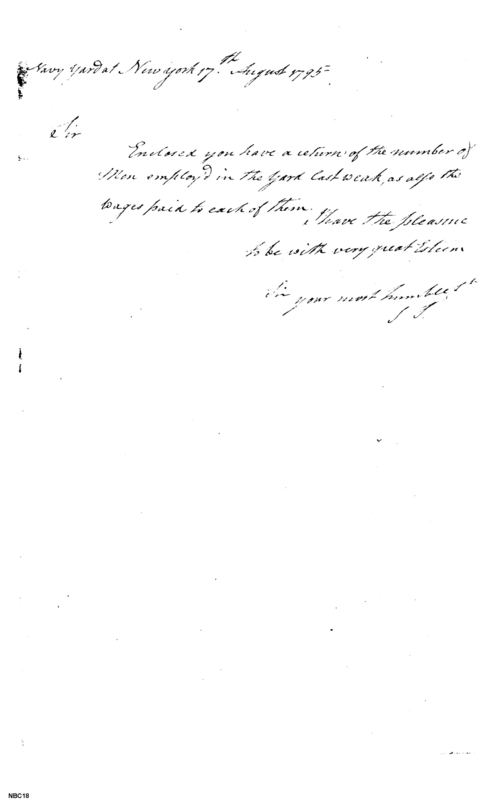 Navy Yard at New York 17.th August 1795
Sir
Enclosed you have a return of the number of
Men employ'd in the Yard last weak, as also the
wages paid to each of them.
I have the pleasure
to be with very great Esteem
Sir your most humble St
NBC18